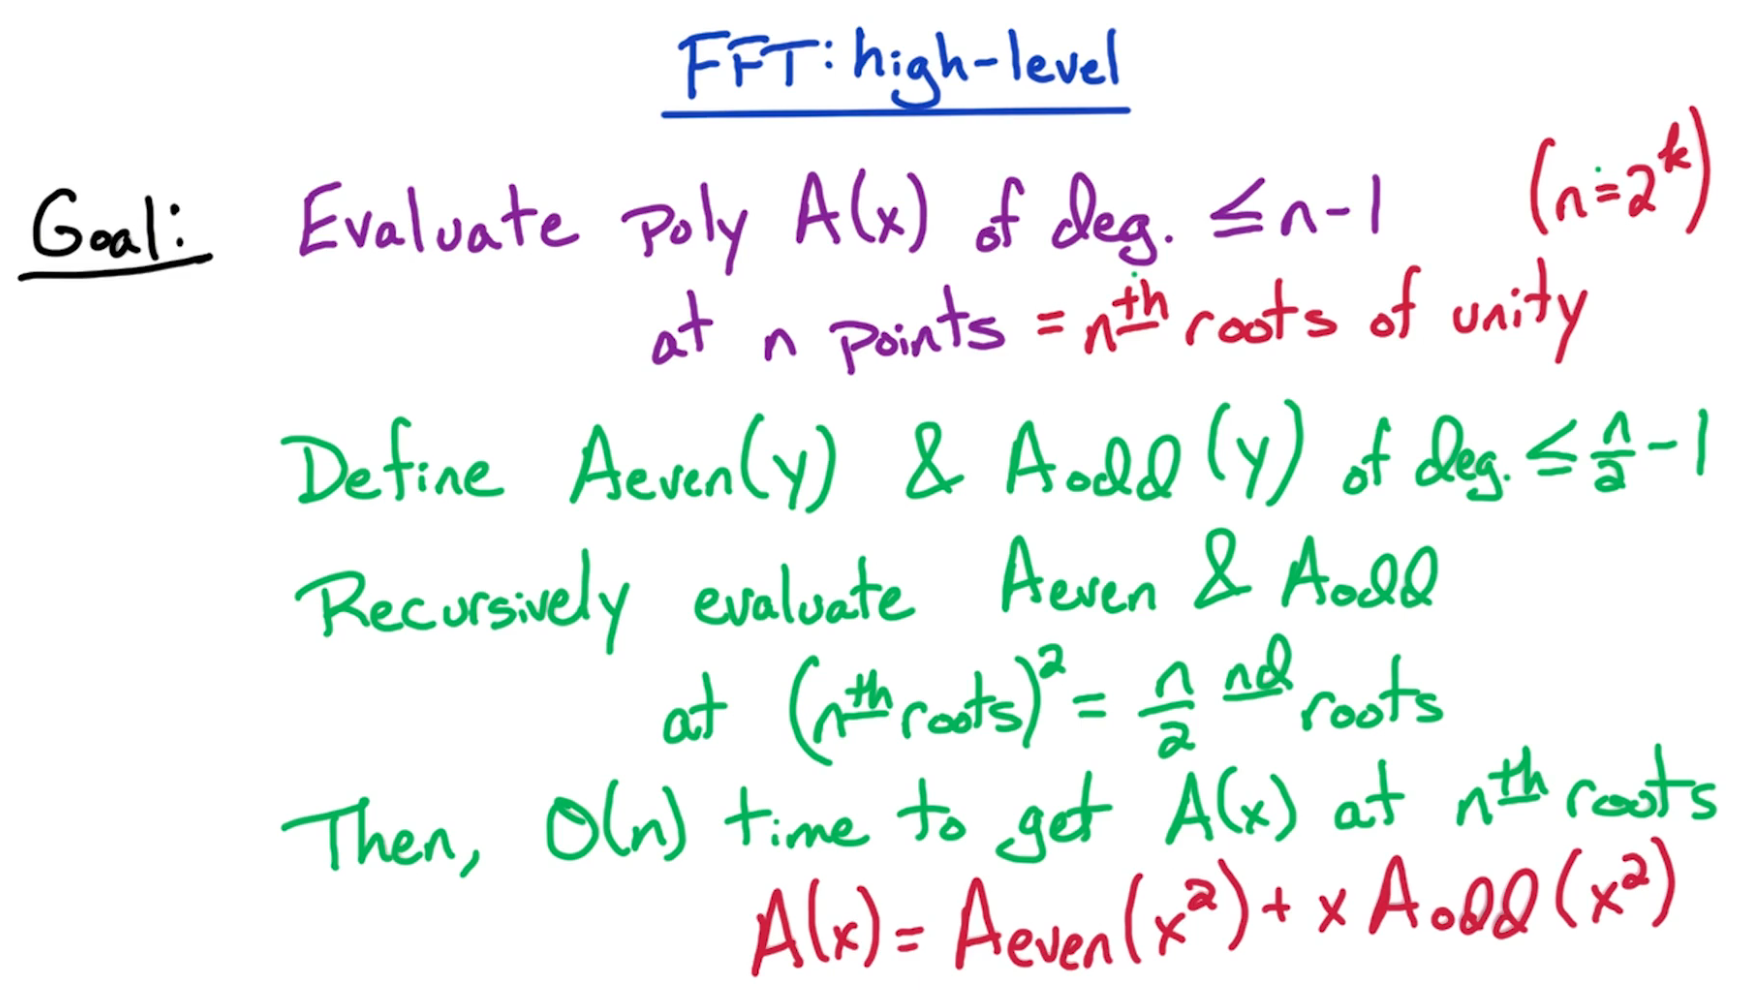 FFT: high-level
Goal: Evaluate poly A(x) of deg. ≤ n-1 (n=2^k)
at n points = n^th roots of unity
Define Aeven(y) & Aodd(y) of deg. ≤ n/2 - 1
Recursively evaluate Aeven & Aodd
at (n^th roots)^2 = n/2 nd roots
Then, O(n) time to get A(x) at n^th roots
A(x) = Aeven(x^2) + x Aodd(x^2)